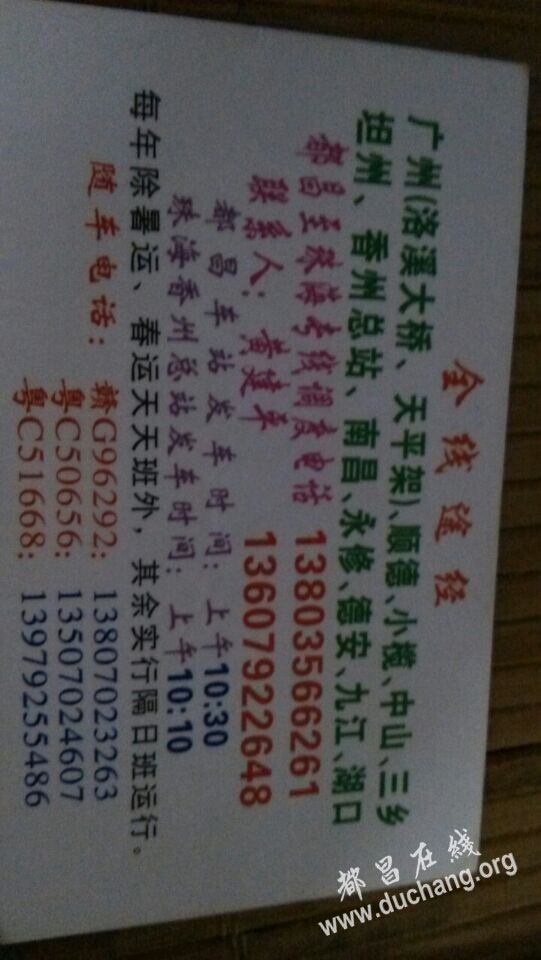 全线途经
广州(洛溪大桥、天平架)、顺德、小榄、中山、三乡
坦州、香州总站、南昌、永修、德安、九江、湖口
都昌至珠海专线调度电话 13803566261
联系人：黄建平 13607922648
都昌车站发车时间：上午10:30
珠海香州总站发车时间：上午10:10
每年除暑运、春运天天班外，其余实行隔日班运行。
随车电话：赣G96292：13807023263
粤C50656：13507024607
粤C51668：13979255486
都昌在線
www.duchang.org